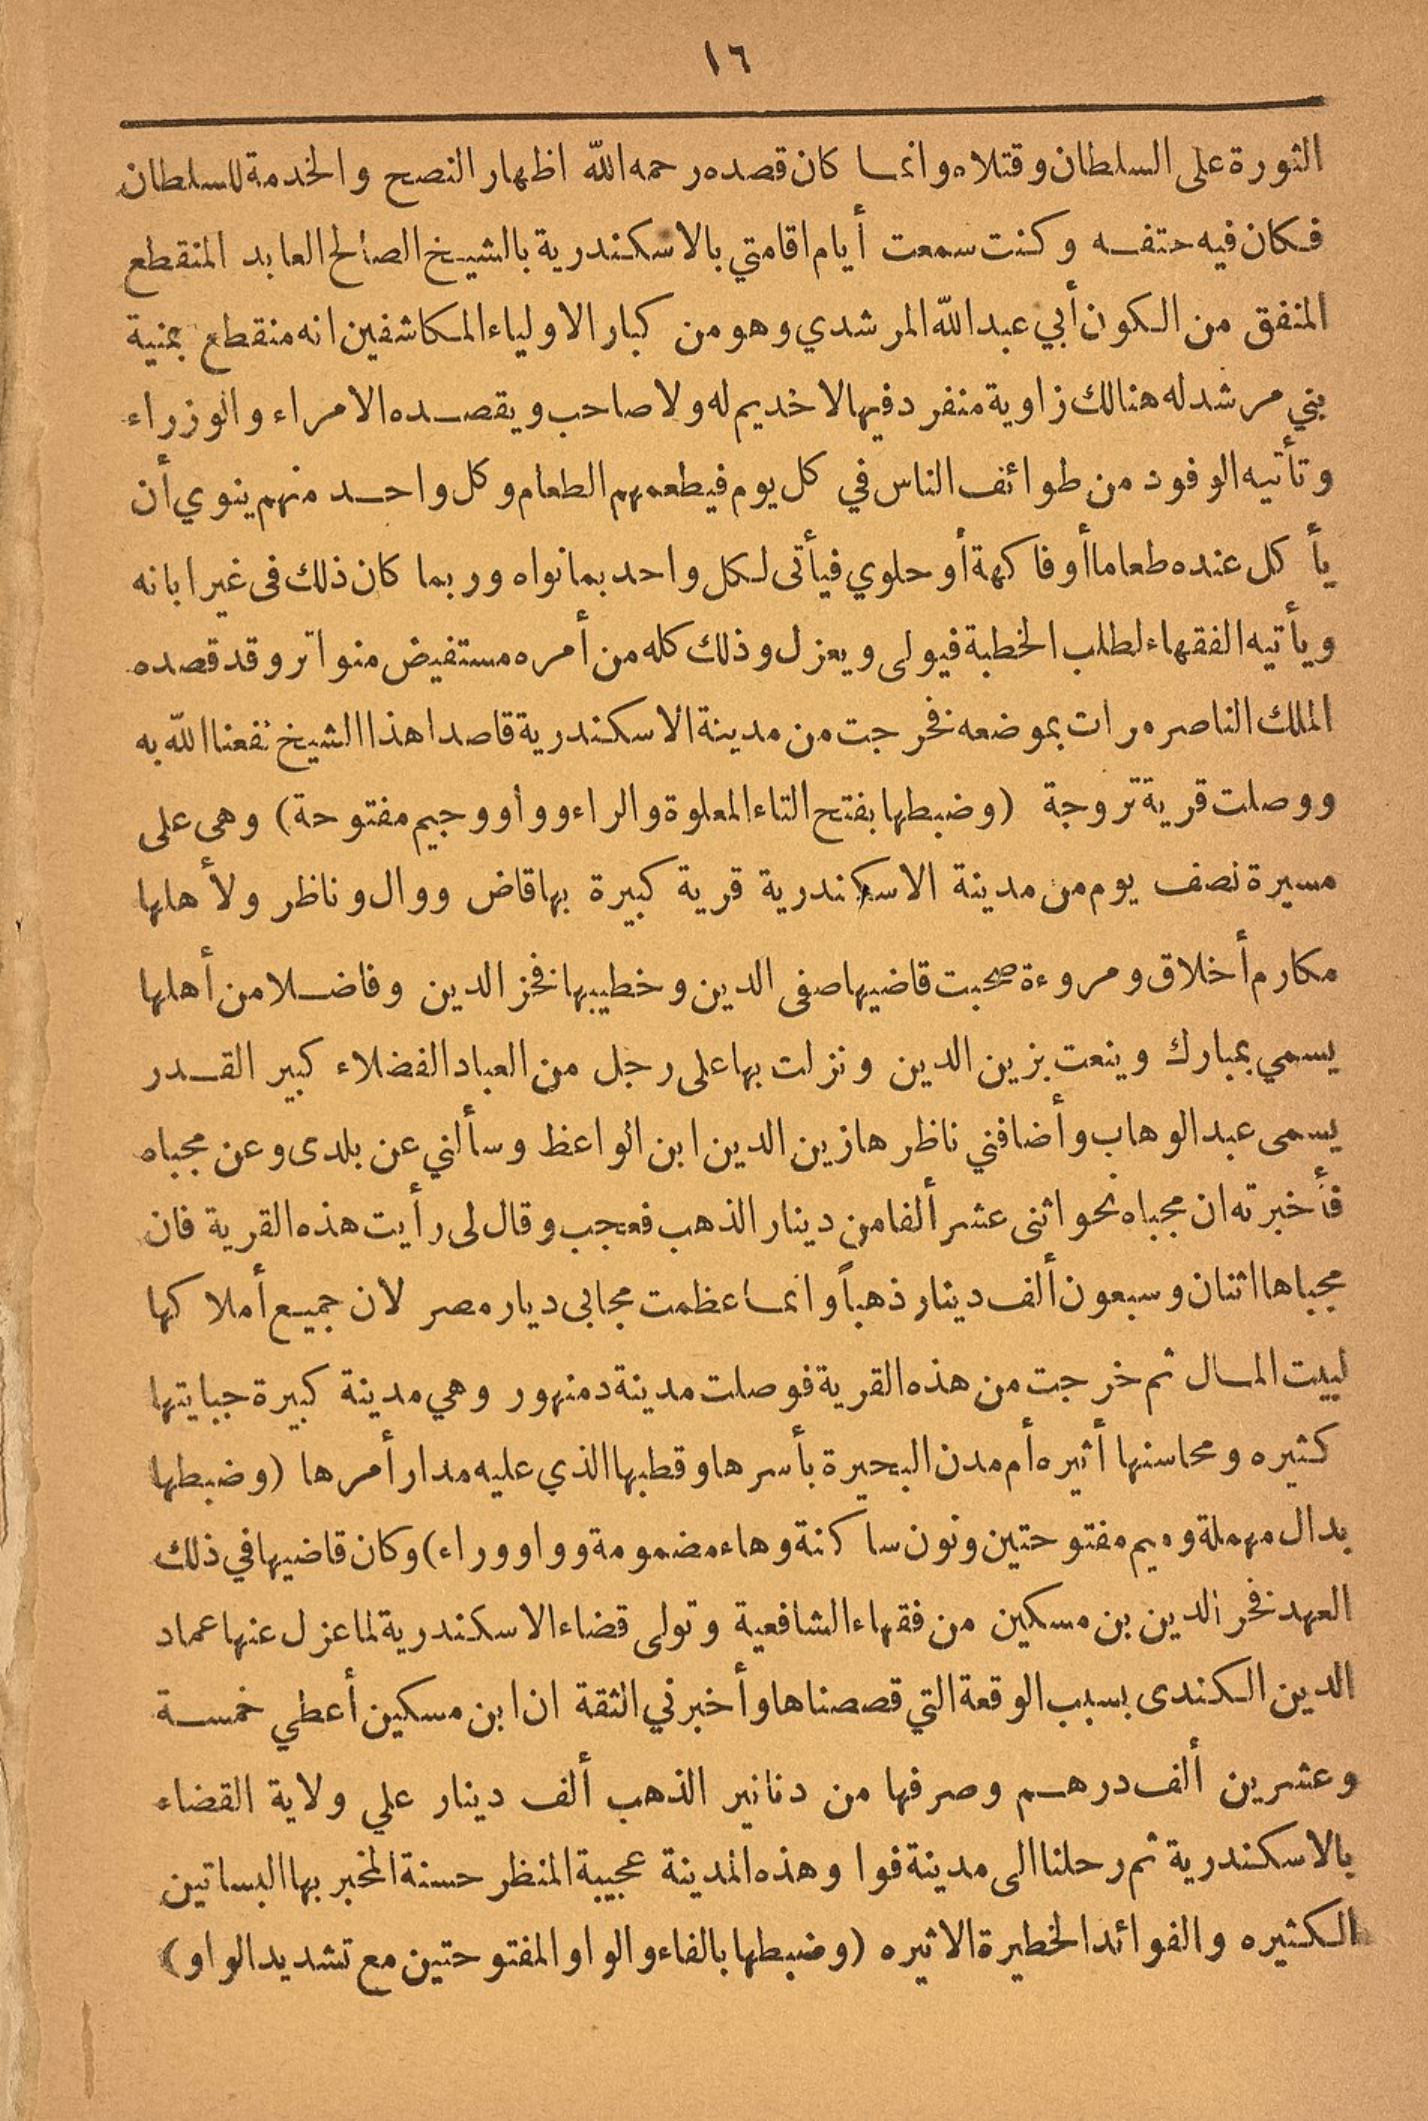 ١٦
الثورة على السلطان وقتلاه وانما كان قصده رحمه الله اظهار النصح والخدمة للسلطان
فكان فيه حتفه وكنت سمعت أيام اقامتي بالاسكندرية بالشيخ الصالح العابد المنقطع
المنفق من الكون أبي عبد الله المرشدي وهو من كبار الاولياء المكاشفين انه منقطع بمنية
بني مرشد له هنالك زاوية منفرد فيها لا خديم له ولا صاحب ويقصده الامراء والوزراء
وتأتيه الوفود من طوائف الناس في كل يوم فيطعمهم الطعام وكل واحد منهم ينوي أن
يأكل عنده طعاما أو فاكهة أو حلوي فيأتى لكل واحد بما نواه وربما كان ذلك فى غير ابانه
ويأتيه الفقهاء لطلب الخطبة فيولى ويعزل وذلك كله من أمره مستفيض متواتر وقد قصده
الملك الناصر مرات بموضعه فخرجت من مدينة الاسكندرية قاصدا هذا الشيخ نفعنا الله به
ووصلت قرية تروجة (وضبطها بفتح التاء المعلوة والراء وواو وجيم مفتوحة) وهى على
مسيرة نصف يوم من مدينة الاسكندرية قرية كبيرة بها قاض ووال وناظر ولأهلها
مكارم أخلاق ومروءة صحبت قاضيها صفى الدين وخطيبها فخر الدين وفاضلا من أهلها
يسمي بمبارك وينعت بزين الدين ونزلت بها على رجل من العباد الفضلاء كبير القدر
يسمى عبد الوهاب وأضافني ناظرها زين الدين ابن الواعظ وسألني عن بلدى وعن مجباه
فأخبرته ان مجباه نحو اثنى عشر ألفا من دينار الذهب فعجب وقال لى رأيت هذه القرية فان
مجباها اثنان وسبعون ألف دينار ذهباً وانما عظمت مجابى ديار مصر لان جميع أملاكها
لبيت المال ثم خرجت من هذه القرية فوصلت مدينة دمنهور وهي مدينة كبيرة جبايتها
كثيره ومحاسنها أثيره أم مدن البحيرة بأسرها وقطبها الذي عليه مدار أمرها (وضبطها
بدال مهملة وميم مفتوحتين ونون ساكنة وهاء مضمومة وواو وراء) وكان قاضيها في ذلك
العهد فخر الدين بن مسكين من فقهاء الشافعية وتولى قضاء الاسكندرية لما عزل عنها عماد
الدين الكندى بسبب الوقعة التي قصصناها وأخبرني الثقة ان ابن مسكين أعطي خمسة
وعشرين ألف درهم وصرفها من دنانير الذهب ألف دينار علي ولاية القضاء
بالاسكندرية ثم رحلنا الى مدينة فوا وهذه المدينة عجيبة المنظر حسنة المخبر بها البساتين
الكثيره والفوائد الخطيرة الاثيره (وضبطها بالفاء والواو المفتوحتين مع تشديد الواو)